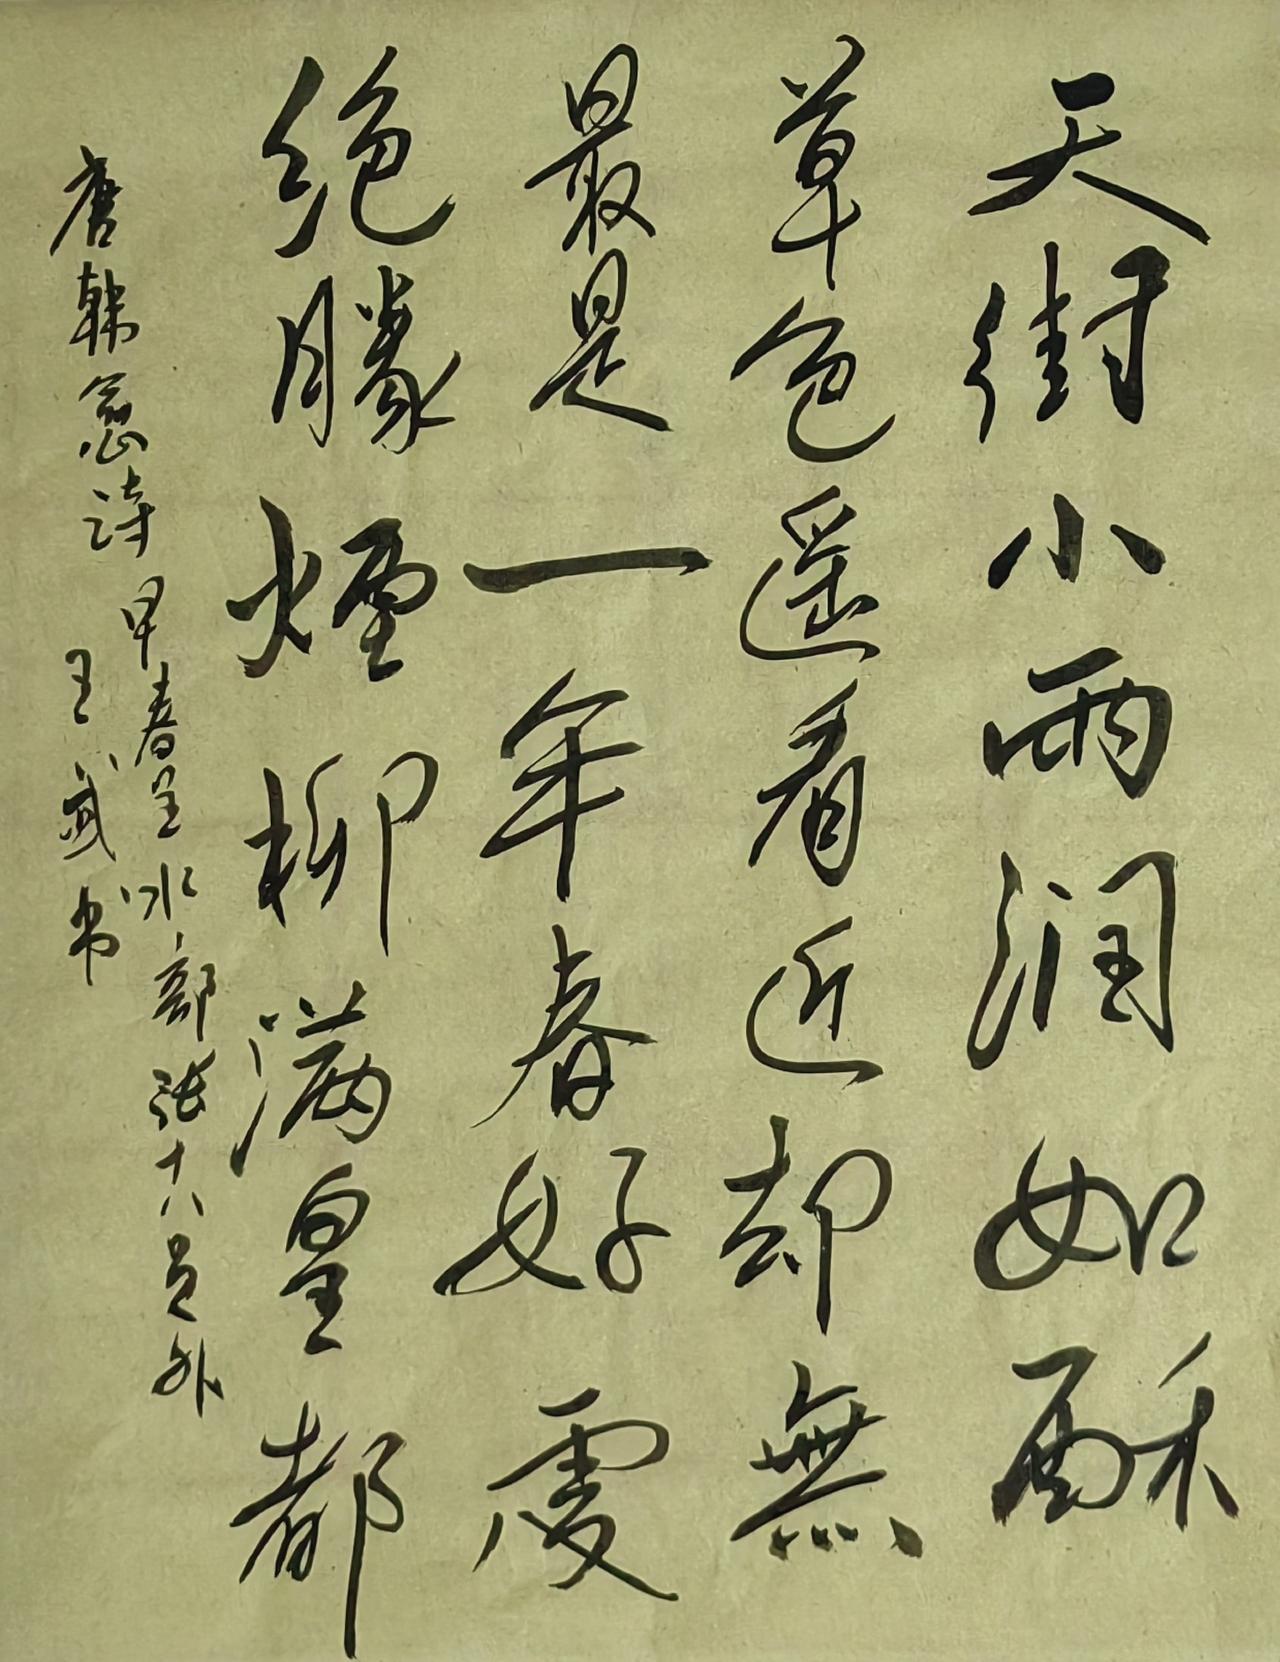 天街小雨润如酥
草色遥看近却無
最是一年春好處
绝勝煙柳满皇都
唐韩愈诗早春呈水部张十八员外
王斌书